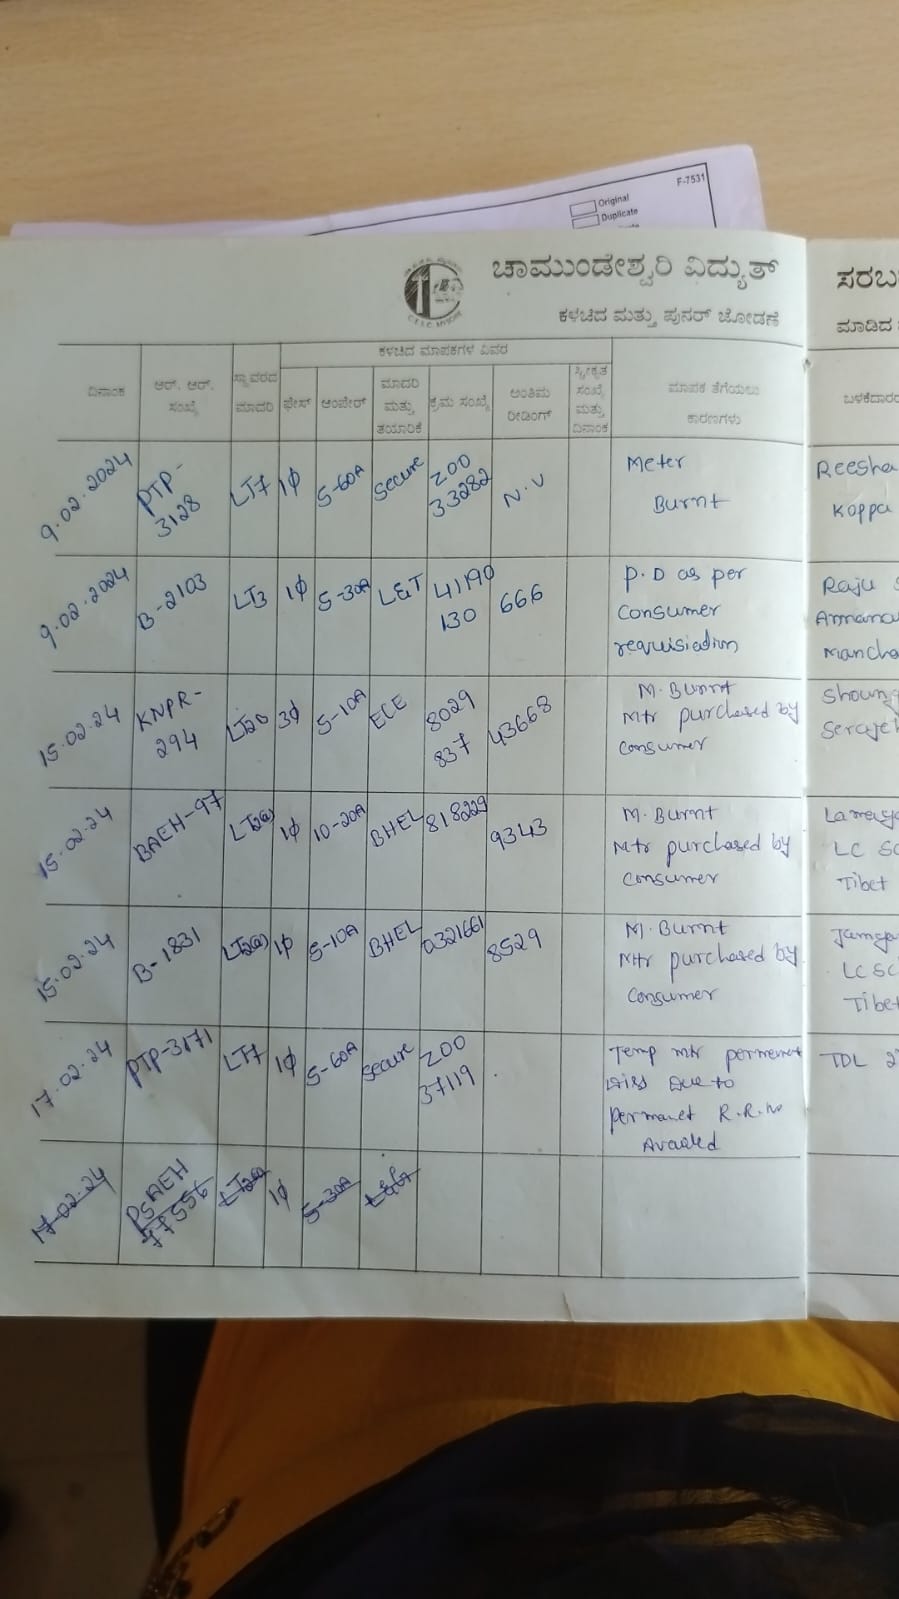 F-7531
Original
Duplicate
ಚಾಮುಂಡೇಶ್ವರಿ ವಿದ್ಯುತ್
ಸರಬ
ಕಳಚಿದ ಮತ್ತು ಪುನರ್ ಜೋಡಣೆ
ಮಾಡಿದ
ಕಳಚಿದ ಮಾಪಕಗಳ ವಿವರ
ದಿನಾಂಕ
ಆರ್. ಆರ್.
ಸಂಖ್ಯೆ
ಸ್ಥಾವರದ
ಮಾದರಿ
ಫೇಸ್
ಆಂಪೇರ್
ಮಾದರಿ
ಮತ್ತು
ತಯಾರಿಕೆ
ಕ್ರಮ ಸಂಖ್ಯೆ
ಅಂತಿಮ
ರೀಡಿಂಗ್
ಸ್ವೀಕೃತ
ಸಂಖ್ಯೆ
ಮತ್ತು
ದಿನಾಂಕ
ಮಾಪಕ ತೆಗೆಯಲು
ಕಾರಣಗಳು
ಬಳಕೆದಾರ
9.02.2024
PTP-
3128
LT7
1φ
5-60A
Secure
Z00
33282
N.V
Meter
Burnt
Reesha
Koppa
9.02.2024
B-2103
LT3
1φ
5-30A
L&T
41190
130
666
P.D as per
Consumer
requisiation
Raju
Mancha
15.02.24
KNPR-
294
3φ
5-10A
ECE
8029
837
43668
M.Burnt
Mtr purchased by
Consumer
15.02.24
BAEH-97
LT2(a)
1φ
10-20A
BHEL
818229
9343
M.Burnt
Mtr purchased by
Consumer
LC
Tibet
15.02.24
B-1831
LT2(a)
1φ
5-10A
BHEL
0321661
8529
M.Burnt
Mtr purchased by
Consumer
LC SC
Tibet
17.02.24
PTP-3171
LT7
1φ
5-60A
Secure
Z00
37119
Temp mtr permenent
Diss Due to
permanet R.R.No
Avaaled
TDL
17.02.24
PSAEH
1φ
5-30A
L&T